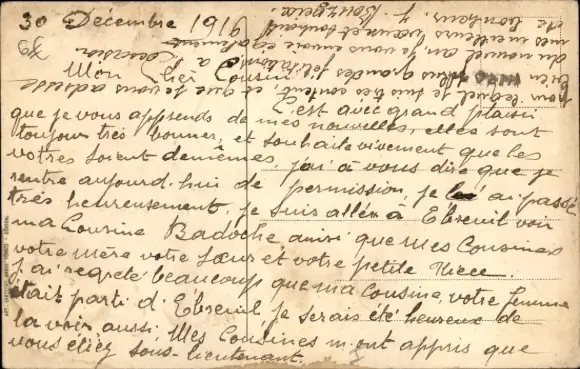 30 Décembre 1916
Mon Cher Cousin
C'est avec grand plaisir
que je vous apprends de mes nouvelles, elles sont
toujours très bonnes, et souhaite vivement que les
votres soient de mêmes, j'ai à vous dire que je
rentre aujourd'hui de permission, je l'ai passé
très heureusement, je suis allée à Ebreuil voir
ma Cousine Badoche ainsi que mes Cousines
votre mère votre sœur et votre petite Nièce.
J'ai regreté beaucoup que ma Cousine votre femme
était parti d'Ebreuil je serais été heureux de
la voir aussi. Mes Cousines m'ont appris que
vous étiez sous-lieutenant.
pour lequel je suis très content, et que je vous adresse
bien mes plus grandes félicitations, à l'occasion
du nouvel an, je vous envoie également
mes meilleurs vœux et souhaits
de bonheur. J. Bourgeix.